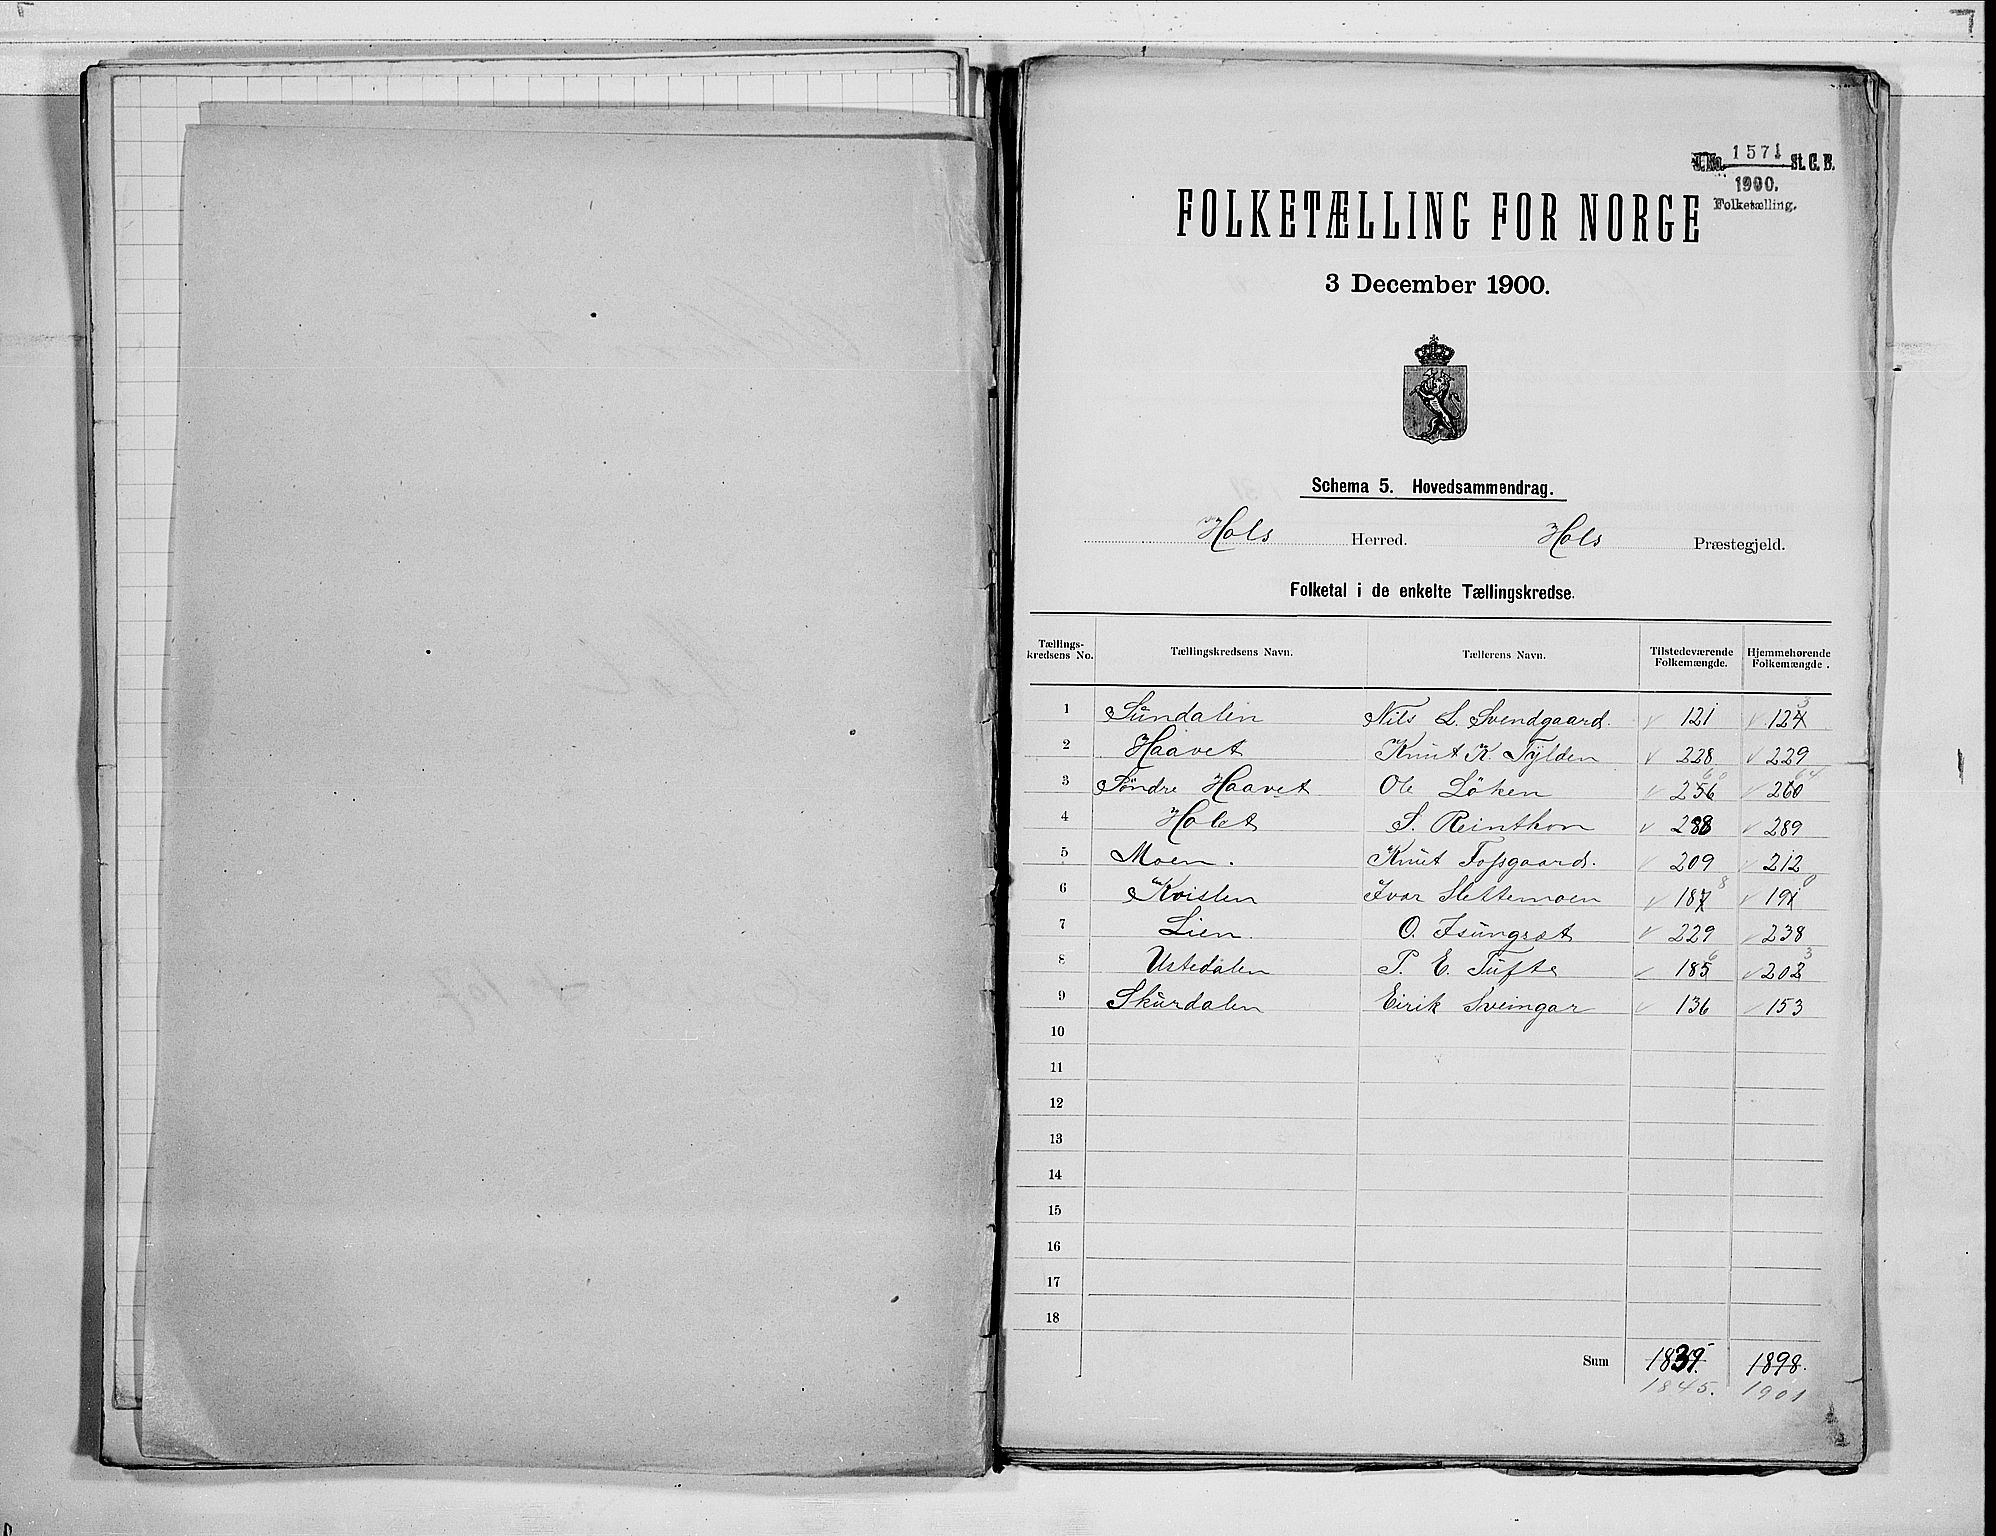 J.No. 1571 St. C. B.
1900.
Folketælling.
FOLKETÆLLING FOR NORGE
3 December 1900.
Schema 5. Hovedsammendrag.
Hols Herred. Hols Præstegjeld.
Folketal i de enkelte Tællingskredse.
Tællingskredsens No. Tællingskredsens Navn. Tællerens Navn. Tilstedeværende Folkemængde. Hjemmehørende Folkemængde.
1 Sundalen Nils L. Svendgaard. 121 124 3
2 Haavet Knut K. Tylden 228 229
3 Søndre Haavet Ole Løken 256 60 260 64
4 Holet S. Reinthon 288 289
5 Moen. Knut Fossgaard. 209 212
6 Kvislen Ivar Slettemoen 187 8 191 0
7 Lien. O. 229 238
8 Ustedalen P. E. Tufte 185 6 202 3
9 Skurdalen Eirik Sveingar 136 153
10
11
12
13
14
15
16
17
18
Sum 1839. 1898.
1845. 1901